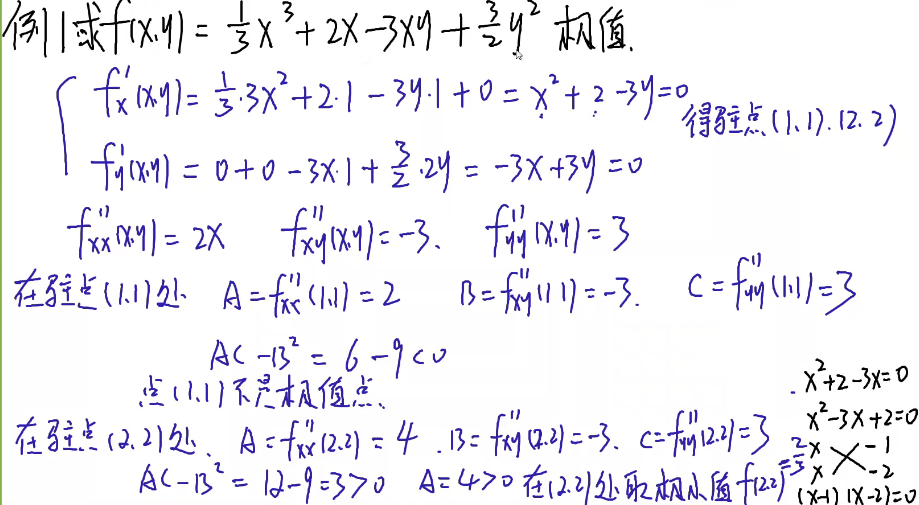 例1 求f(x,y) = 1/3 x³ + 2x - 3xy + 3/2 y² 极值.
f'x(x,y) = 1/3·3x² + 2·1 - 3y·1 + 0 = x² + 2 - 3y = 0
得驻点(1,1).(2,2)
f'y(x,y) = 0 + 0 - 3x·1 + 3/2·2y = -3x + 3y = 0
f''xx(x,y) = 2x f''xy(x,y) = -3. f''yy(x,y) = 3
在驻点(1,1)处. A = f''xx(1,1) = 2 B = f''xy(1,1) = -3. C = f''yy(1,1) = 3
AC - B² = 6 - 9 < 0
点(1,1)不是极值点.
在驻点(2,2)处. A = f''xx(2,2) = 4 . B = f''xy(2,2) = -3. C = f''yy(2,2) = 3
AC - B² = 12 - 9 = 3 > 0 A = 4 > 0 在(2,2)处取极小值 f(2,2) = 2/3
x² + 2 - 3x = 0
x² - 3x + 2 = 0
x -1
x -2
(x-1)(x-2) = 0